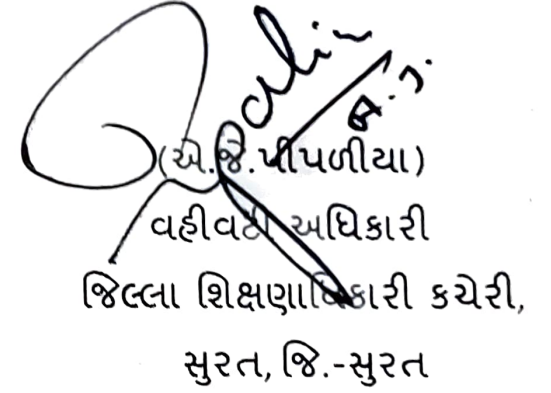 (એ.જે.પીપળીયા)
વહીવટી અધિકારી
જિલ્લા શિક્ષણાધિકારી કચેરી,
સુરત, જિ.-સુરત